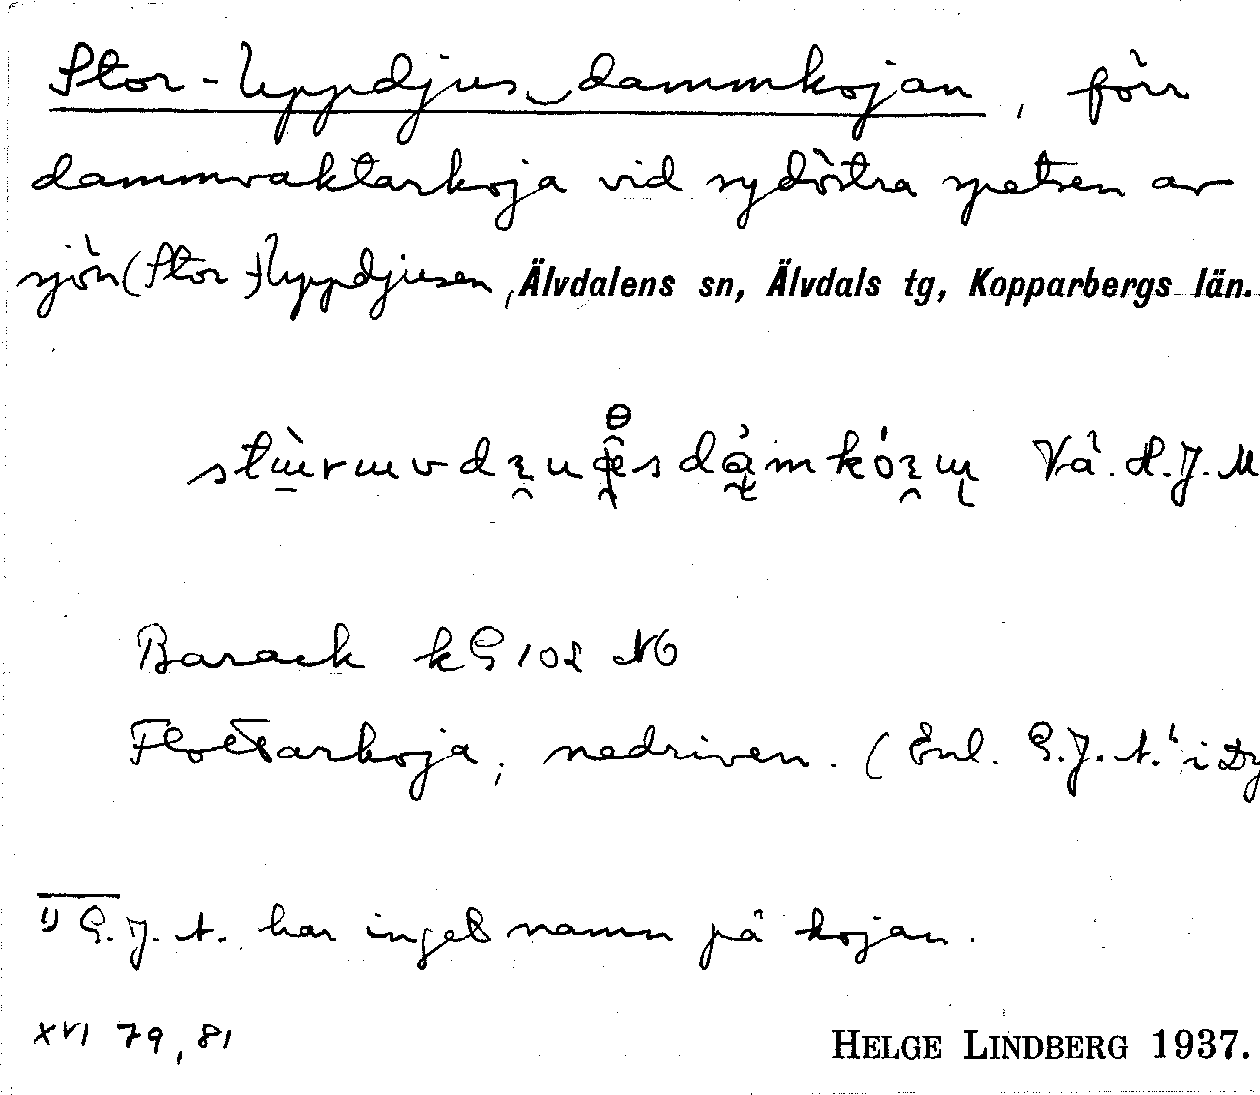 Stor-Uppdjus_dammkojan, förr
dammvaktarkoja vid sydöstra spetsen av
sjön (Stor-)Uppdjusen, Älvdalens sn, Älvdals tg, Kopparbergs län.
Vå. H.J.M
Barack kG 102 NO
Flottarkoja, nedriven. (Enl. G.J.A.¹ i Dy
1) G.J.A. har inget namn på kojan.
XVI 79, 81
HELGE LINDBERG 1937.